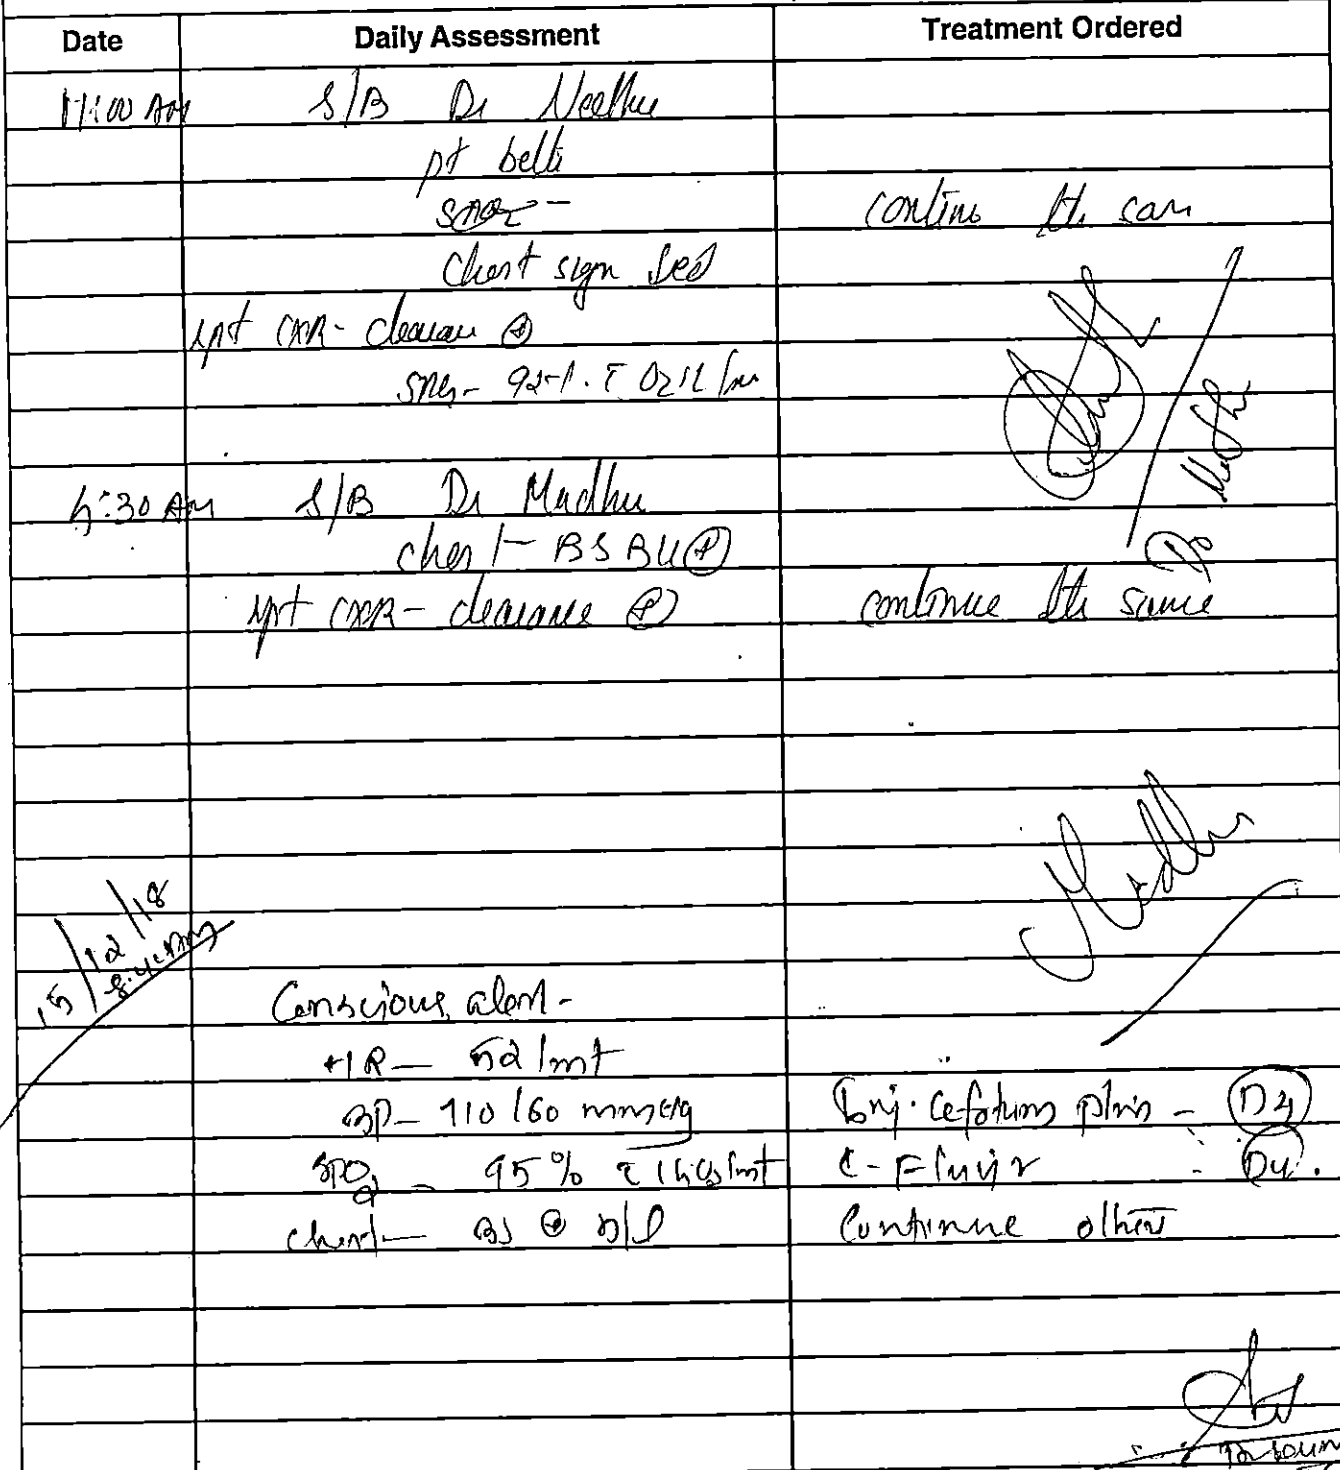 Date Daily Assessment Treatment Ordered
11:00 AM S/B Dr Neethu
pt bette
continue the sam
Chest sign
rpt CXR- clearance ⊕
92-1. c̄ O2 1L/m
5:30 AM S/B Dr Madhu
chest - BS BL ⊕
rpt CXR - clearance ⊕ continue the same
Madhu
15/12/18
Conscious, alert -
HR - 52/mt
BP - 110/60 mmHg Inj. - D4
SPO2 - 95% c̄ C-Fluvir - D4.
Chest - BS ⊕ B/L Continue others